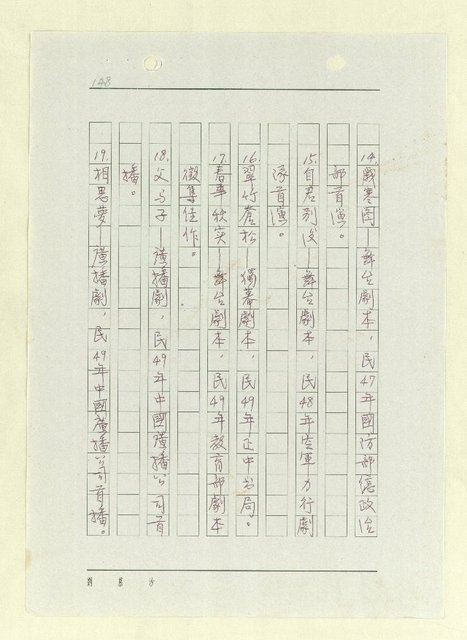 148
14.歲寒图—舞台劇本，民47年國防部總政治
部首演。
15.自君别後—舞台劇本，民48年空軍力行劇
隊首演。
16.翠竹蒼松—獨幕劇本，民49年正中书局。
17.春華秋实—舞台劇本，民49年教育部劇本
徵集佳作。
18.父与子—廣播劇，民49年中國廣播公司首
播。
19.相思夢—廣播劇，民49年中國廣播公司首播。
劉慕沙